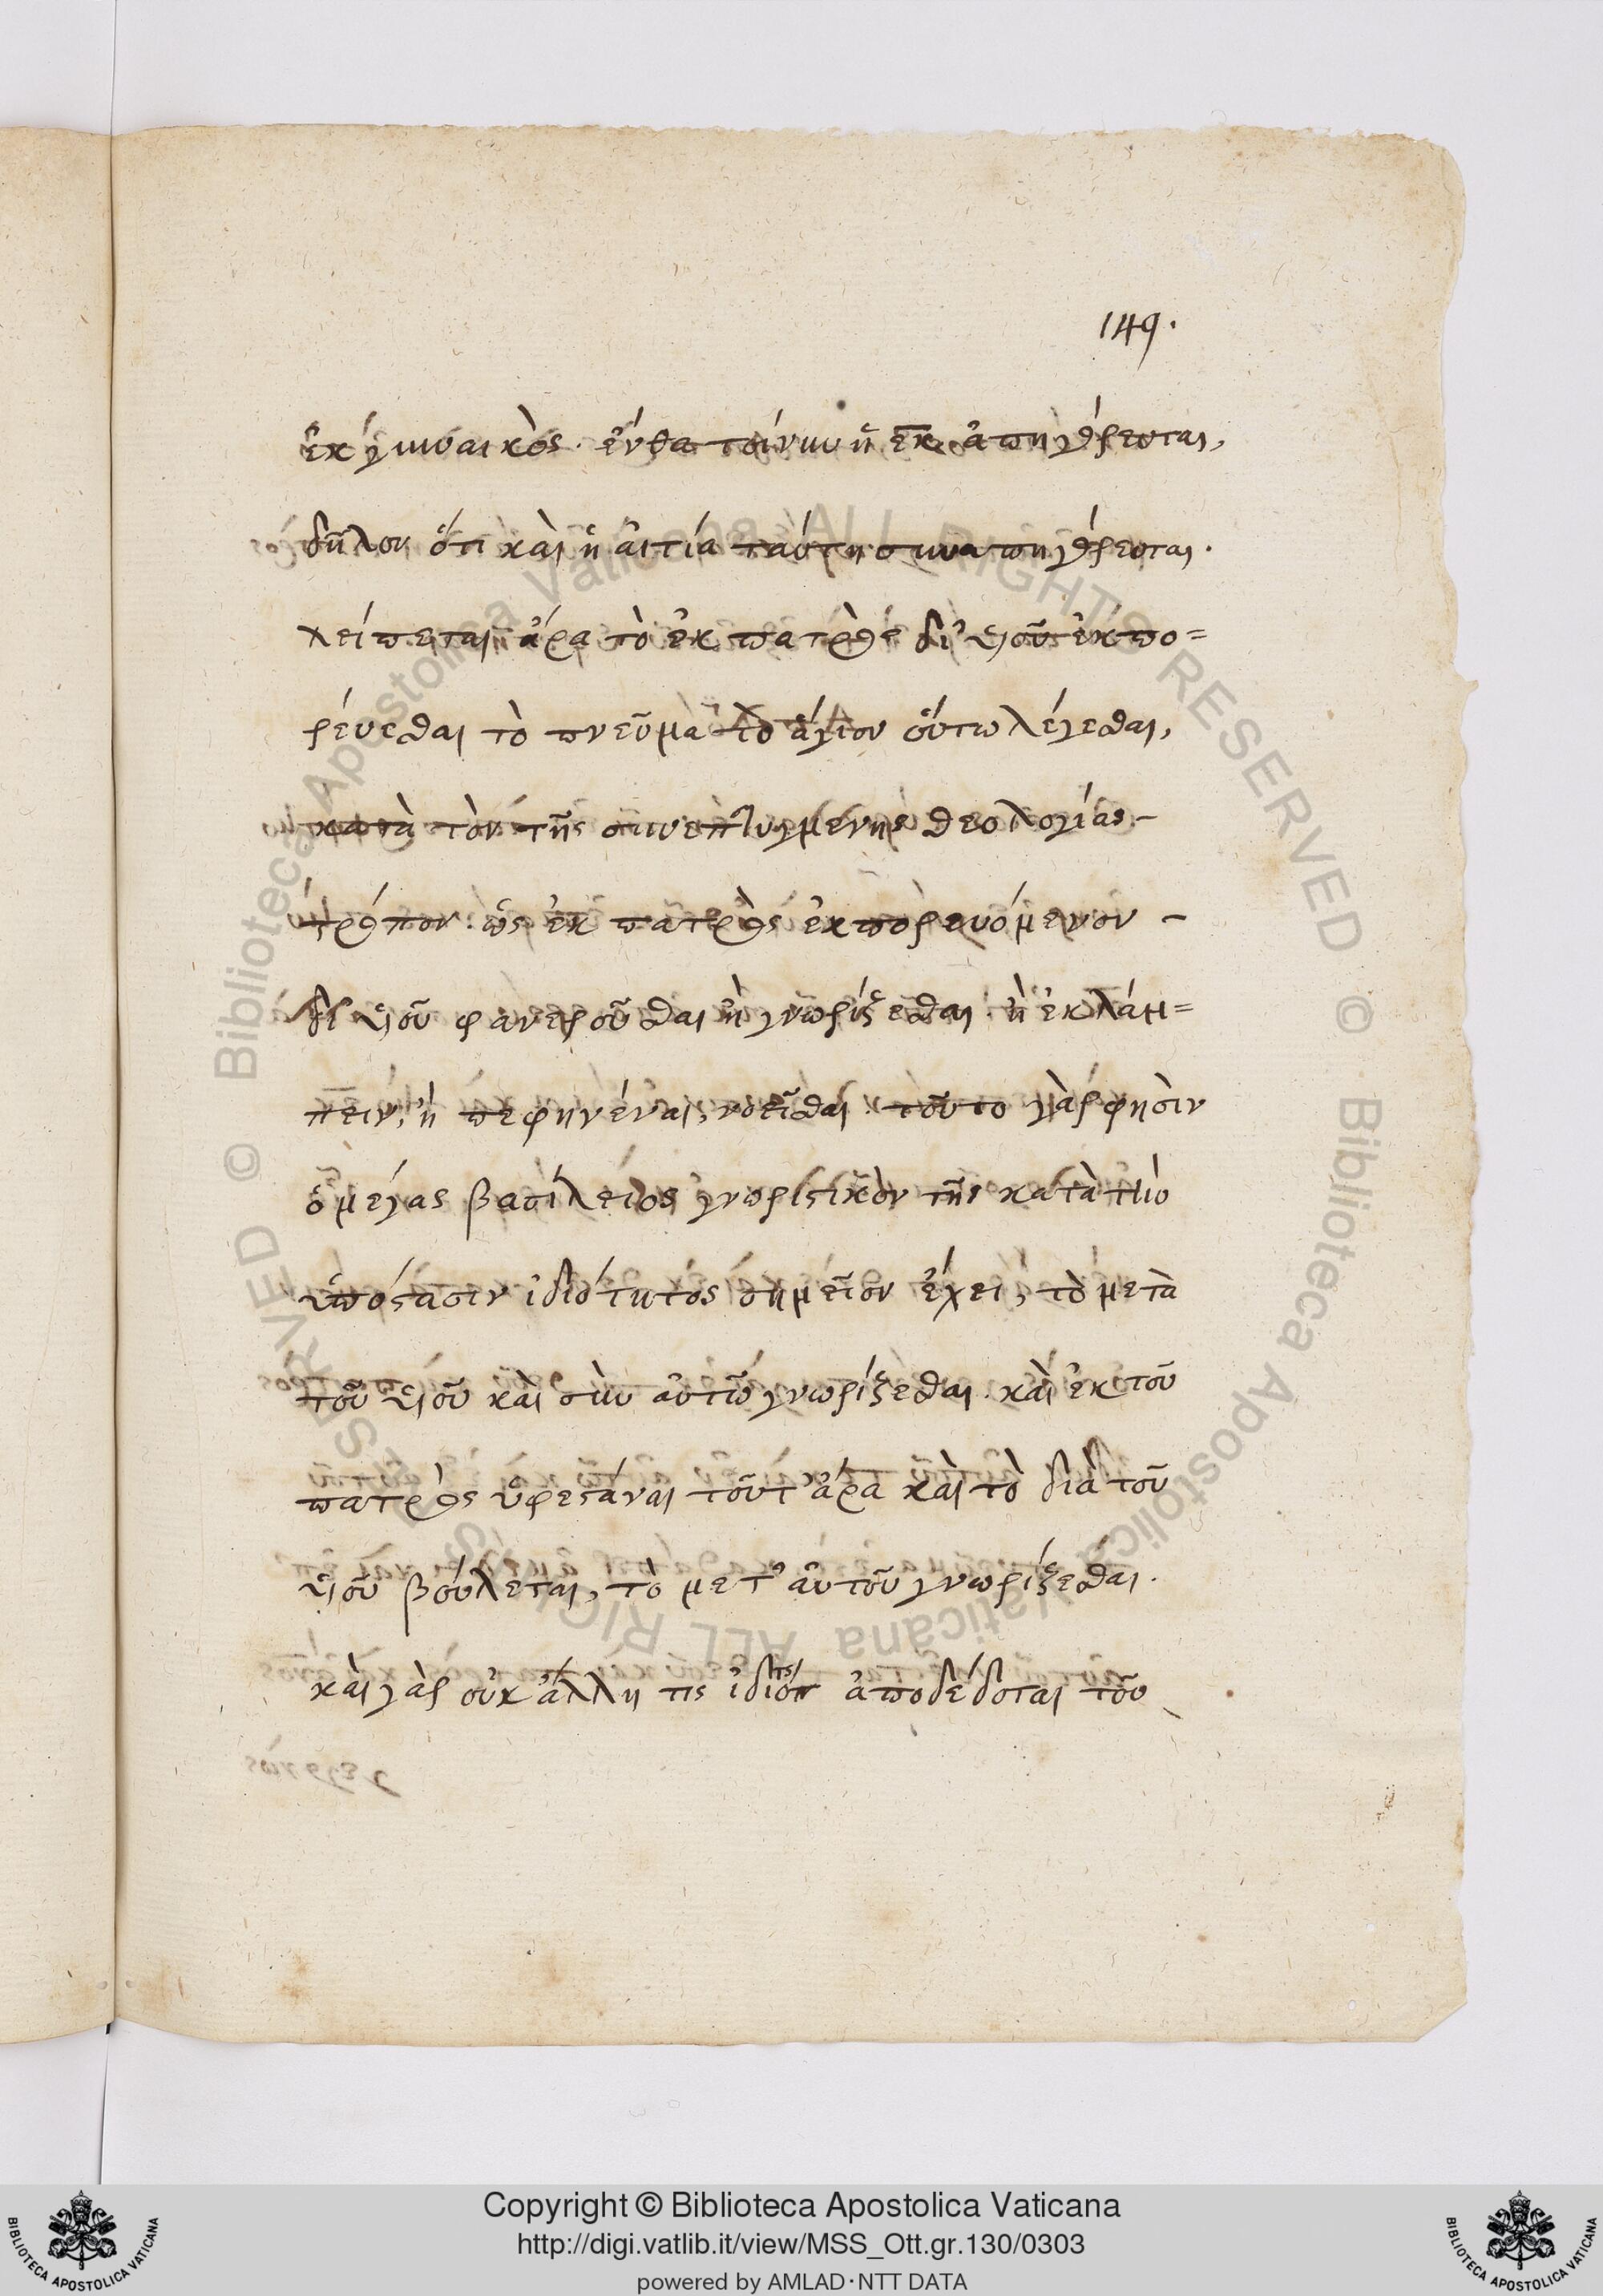 149.
ἐκ γυναικὸς· ἔνθα τοίνυν ἡ ἐκ ἀπηγόρευται,
δῆλον ὅτι καὶ ἡ αἰτία ταύτῃ συναπηγόρευται.
λείπεται ἄρα τὸ ἐκ πατρὸς δι' υἱοῦ ἐκπο=
ρεύεσθαι τὸ πνεῦμα τὸ ἅγιον οὕτω λέγεσθαι,
κατὰ τὸν τῆς συνεπτυγμένης θεολογίας–
τρόπον· ὡς ἐκ πατρὸς ἐκπορευόμενον –
δι' υἱοῦ φανεροῦσθαι ἢ γνωρίζεσθαι· ἢ ἐκλάμ=
πειν, ἢ πεφηνέναι, νοεῖσθαι· τοῦτο γὰρ φησὶν
ὁ μέγας βασίλειος γνωριστικὸν τῆς κατὰ τὴν
ὑπόστασιν ἰδιότητος σημεῖον ἔχει, τὸ μετὰ
τοῦ υἱοῦ καὶ σὺν αὐτῷ γνωρίζεσθαι· καὶ ἐκ τοῦ
πατρὸς ὑφεστάναι τοῦτ' ἄρα καὶ τὸ διὰ τοῦ
υἱοῦ βούλεται, τὸ μετ' αὐτοῦ γνωρίζεσθαι.
καὶ γὰρ οὐκ ἄλλη τις ἰδιότης ἀποδέδοται τοῦ
Copyright © Biblioteca Apostolica Vaticana
http://digi.vatlib.it/view/MSS_Ott.gr.130/0303
powered by AMLAD·NTT DATA
BIBLIOTECA APOSTOLICA VATICANA
BIBLIOTECA APOSTOLICA VATICANA
© Biblioteca Apostolica Vaticana ALL RIGHTS RESERVED © Biblioteca Apostolica Vaticana ALL RIGHTS RESERVED